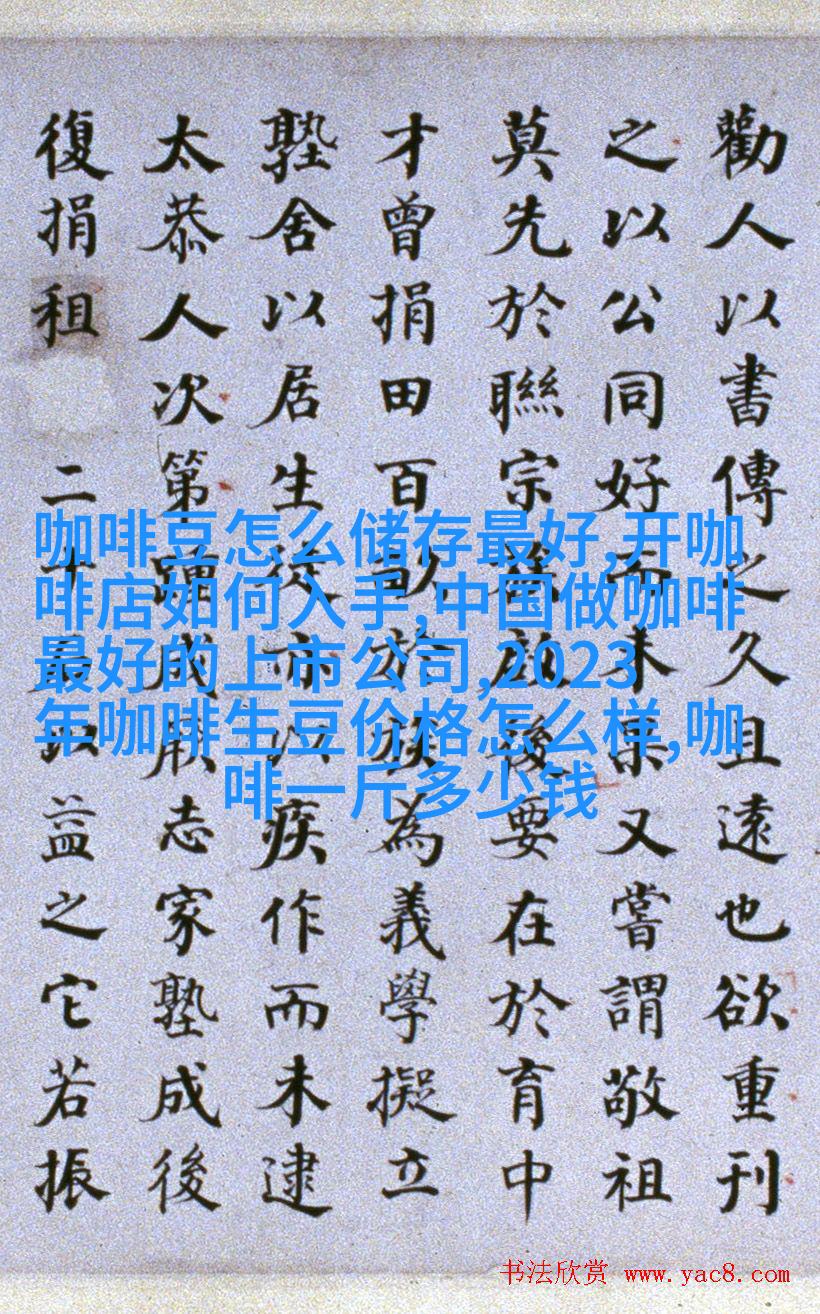 勸人以書傳之久且遠也欲重刊
之以公同好而未果又嘗謂敬祖
莫先於聯宗族後要在於育中
才曾捐田百畝於族為義學擬立
塾舍以居生徒亦以疾作而未逮
太恭人次第踵成厥志家塾成後
復捐租二十益之它若振
咖啡豆怎么储存最好,开咖
啡店如何入手,中国做咖啡
最好的上市公司,2023
年咖啡生豆价格怎么样,咖
啡一斤多少钱
书法欣赏 www.yac8.com